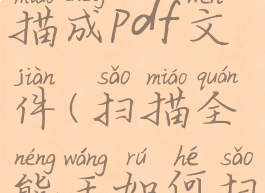 描成pdf文
jiàn sǎo miáo quán
件(扫描全
néng wáng rú hé sǎo
能王如何扫